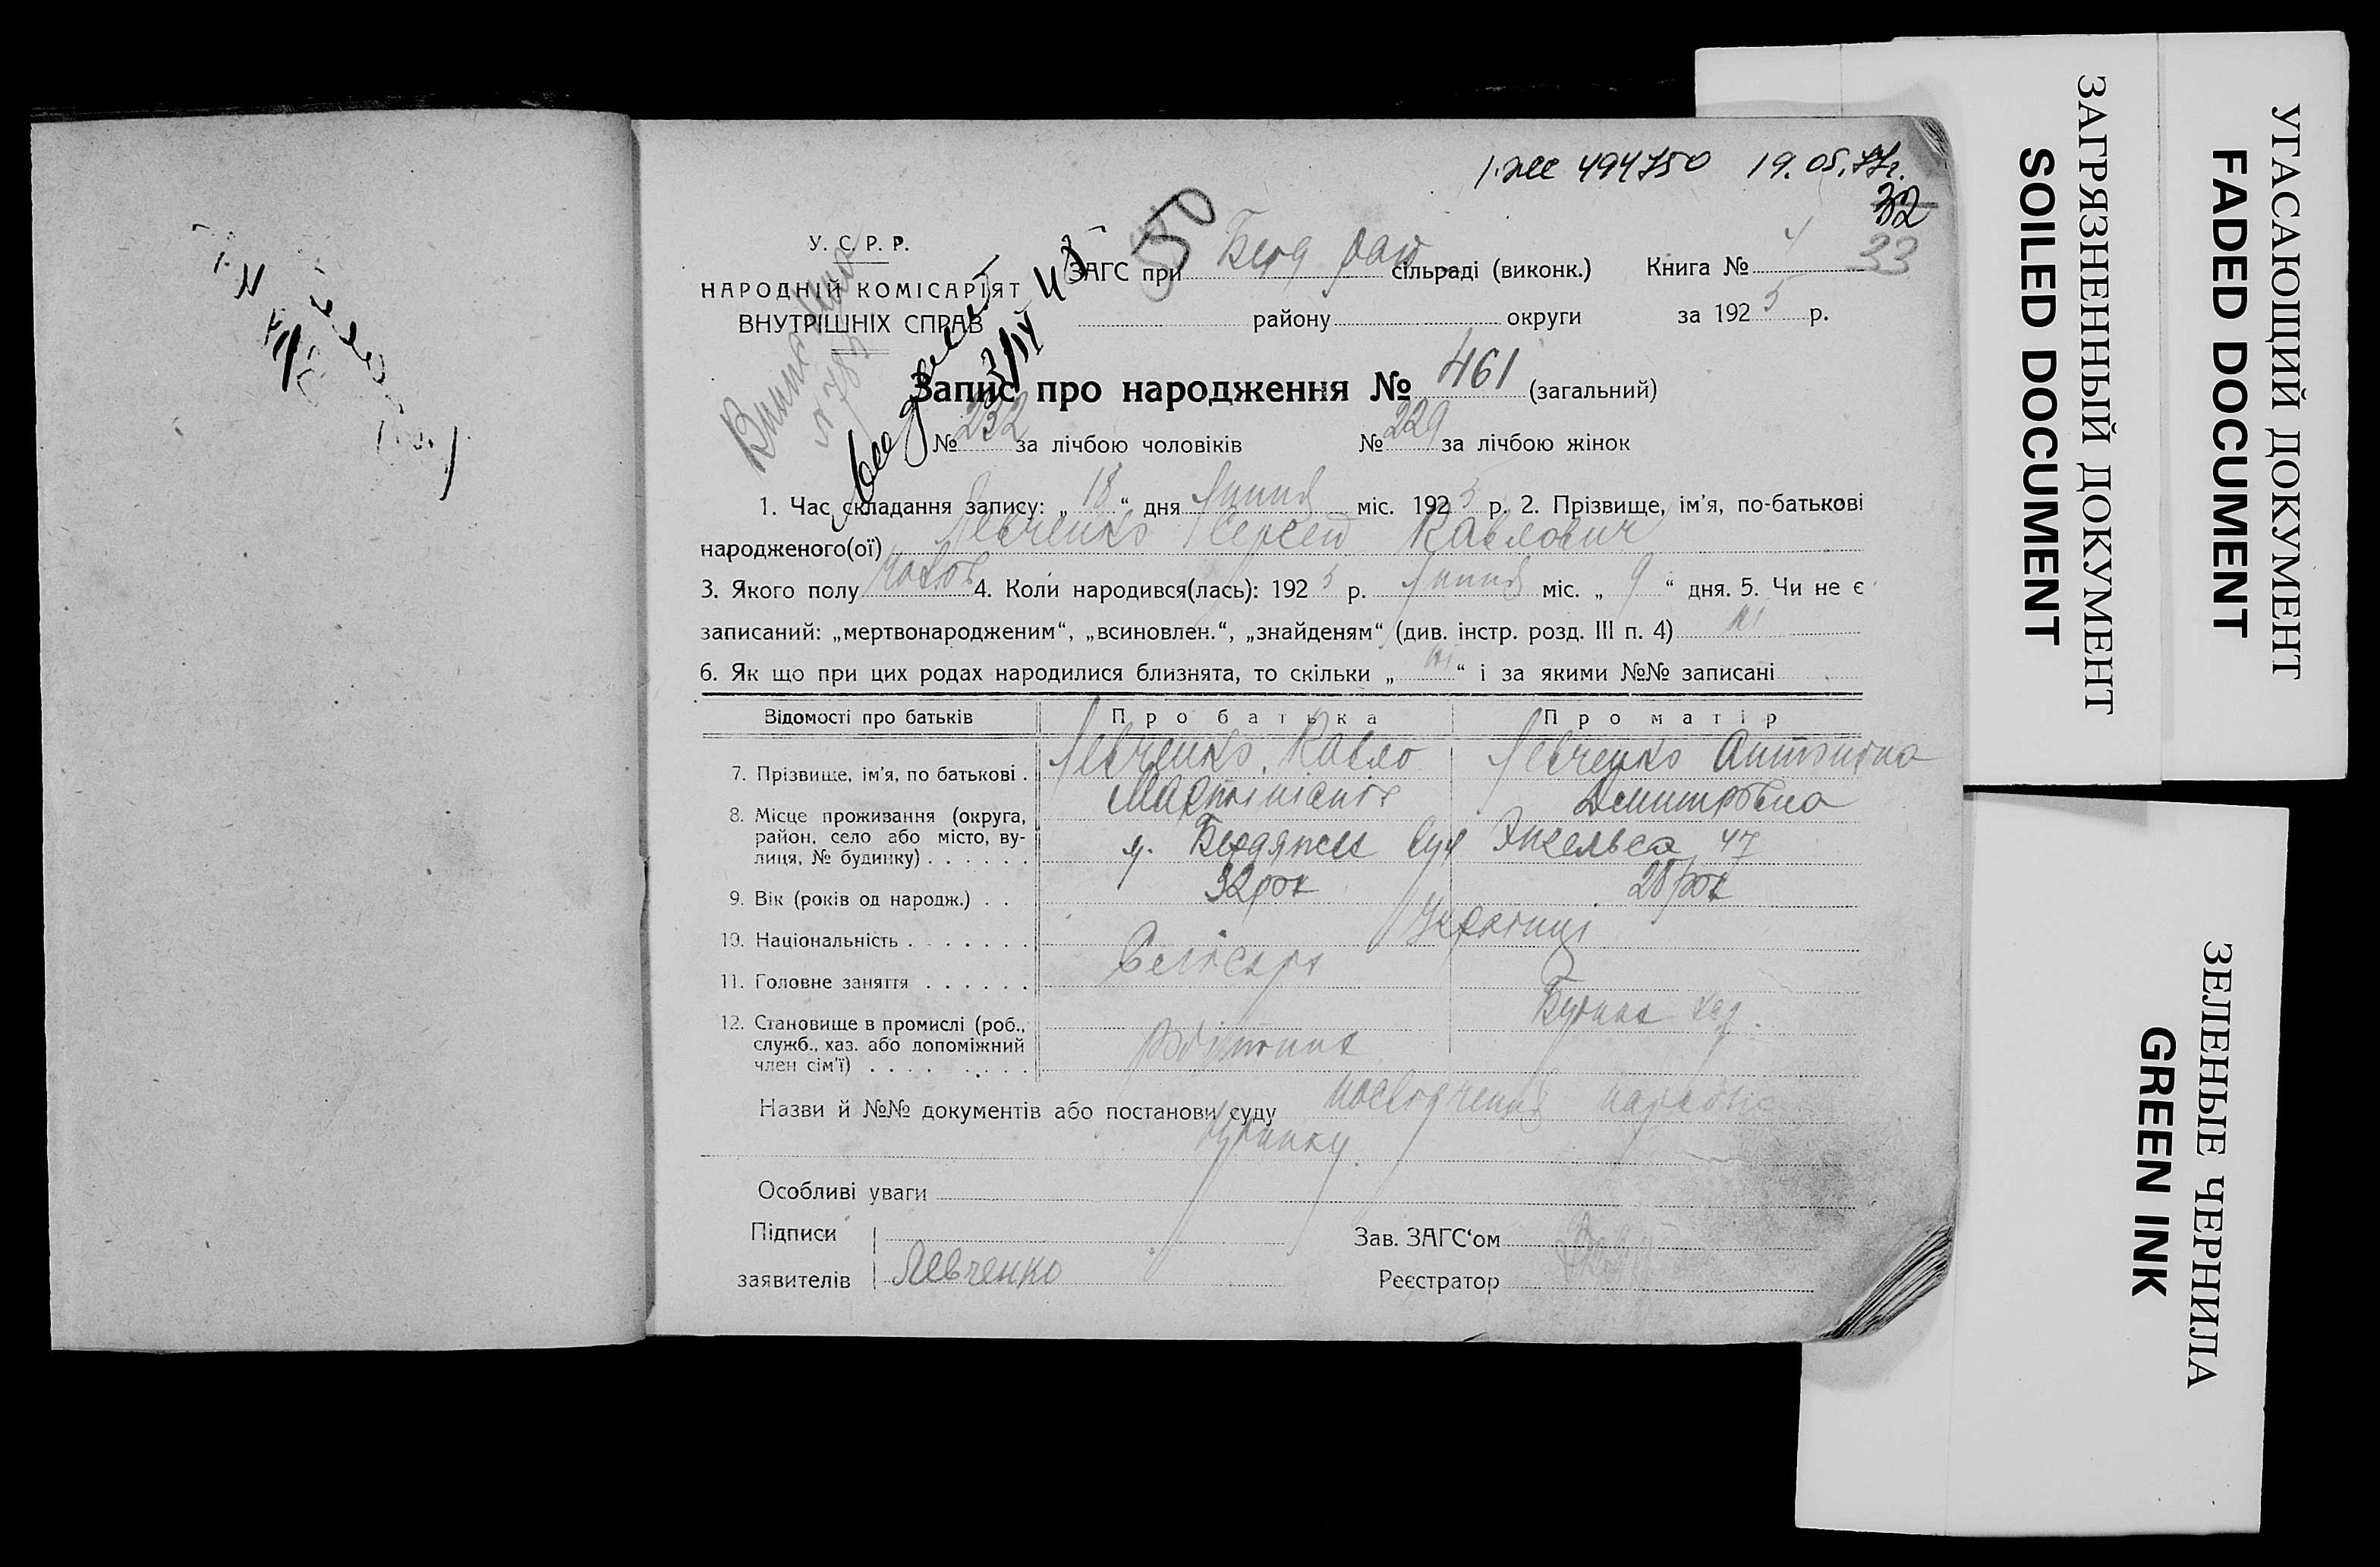 19.05.77г.
32
33
50
У. С. Р. Р.
НАРОДНІЙ КОМІСАРІЯТ
ВНУТРІШНІХ СПРАВ
ЗАГС при Берд рай сільраді (виконк.) Книга № 4
району округи за 1925 р.
Запис про народження № 461 (загальний)
№ 232 за лічбою чоловіків № 229 за лічбою жінок
1. Час складання запису: „ 18 “ дня Липня міс. 1925 р. 2. Прізвище, ім’я, по-батькові
народженого(ої) Левченко Сергей Павлович
3. Якого полу чолов 4. Коли народився(лась): 1925 р. Липня міс. „ 9 “ дня. 5. Чи не є
записаний: „мертвонародженим“, „всиновлен.“, „знайденям“ (див. інстр. розд. III п. 4) ні
6. Як що при цих родах народилися близнята, то скільки „ ні “ і за якими №№ записані
Відомості про батьків Про батька Про матір
7. Прізвище, ім’я, по батькові . Левченко Павло Левченко Антонина
Дмитровна
8. Місце проживання (округа,
район, село або місто, ву-
лиця, № будинку) . . . . . . м. Бердянськ вул Энгельса 47
9. Вік (років од народж.) . . 32 рок 28 рок
10. Національність . . . . . . . Українці
11. Головне заняття . . . . . .
12. Становище в промислі (роб.,
служб., хаз. або допоміжний
член сім’ї) . . . . . . . .
Назви й №№ документів або постанови суду посвідчення
будинку.
Особливі уваги
Підписи Зав. ЗАГС‘ом
заявителів Левченко Реєстратор
УГАСАЮЩИЙ ДОКУМЕНТ
FADED DOCUMENT
ЗАГРЯЗНЕННЫЙ ДОКУМЕНТ
SOILED DOCUMENT
ЗЕЛЕНЫЕ ЧЕРНИЛА
GREEN INK